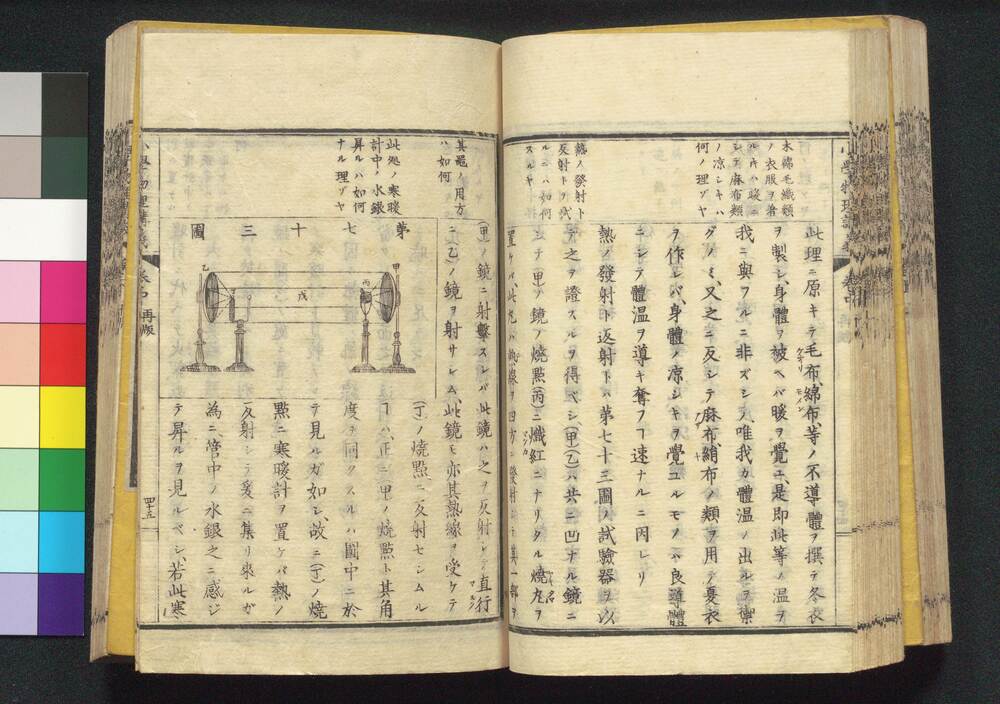 木綿毛織類
ノ衣服ヲ着
ルトキハ暖ニ
シテ麻布類
ノ凉シキハ
何ノ理ゾヤ
熱ノ發射ト
反射トヲ試
ルニハ如何
スルヤ
此理ニ原キテ毛布、綿布等ノ不導體ヲ撰テ冬衣
ケオリ モメン
ヲ製シ、身體ヲ被ヘバ暖ヲ覺ユ、是即此等ノ温ヲ
我ニ與フルニ非ズシテ、唯我カ體温ノ出ルヲ禦
グノミ、又之ニ反シテ麻布、絹布ノ類ヲ用テ夏衣
ヲ作レバ、身體ノ凉シキヲ覺ユルモノハ良導體
ニシテ體温ヲ導キ奪フヿ速ナルニ因レリ
熱ノ發射ト返射トハ第七十三圖ノ試驗器ヲ以
テ之ヲ證スルヲ得ベシ、(甲)(乙)ハ共ニ凹ナル鏡ニ
シテ(甲)ノ鏡ノ燒點(丙)ニ熾紅ニナリタル燒丸ヲ
置ケバ、此丸ハ熱線ヲ四方ニ發射シテ其一部ヲ
其器ノ用方
ハ如何
此処ノ寒暖
計中ノ水銀
昇ルハ如何
ナル理ゾヤ
(甲)ノ鏡ニ射擊スレバ此鏡ハ之ヲ反射シテ直行
マスグ
ニ(乙)ノ鏡ヲ射サシム、此鏡モ亦其熱線ヲ受ケテ
(丁)ノ燒點ニ反射セシムル
ヿハ、正ニ甲ノ燒點ト其角
度ヲ同クスルハ圖中ニ於
テ見ルガ如シ、故ニ(丁)ノ燒
點ニ寒暖計ヲ置ケバ熱ノ
反射シテ爰ニ集リ來ルガ
為ニ管中ノ水銀之ニ感ジ
テ昇ルヲ見ルベシ、若此寒
第七十三圖
甲
丙
戊
乙
四十五
再版